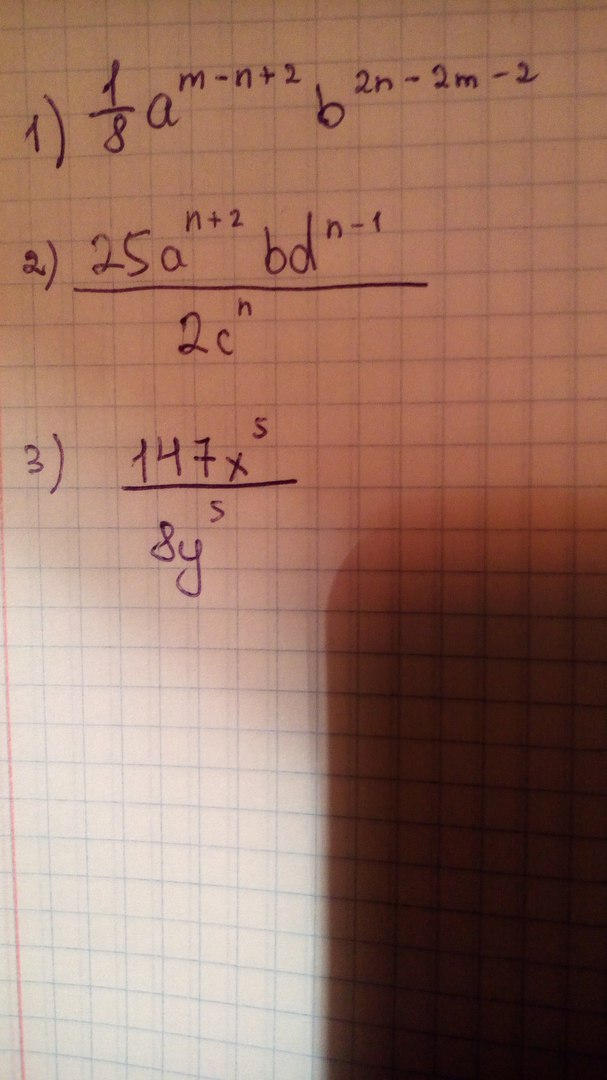 1) \frac{1}{8} a^{m-n+2} b^{2n-2m-2}
2) \frac{25a^{n+2} bd^{n-1}}{2c^{n}}
3) \frac{147x^{5}}{8y^{5}}